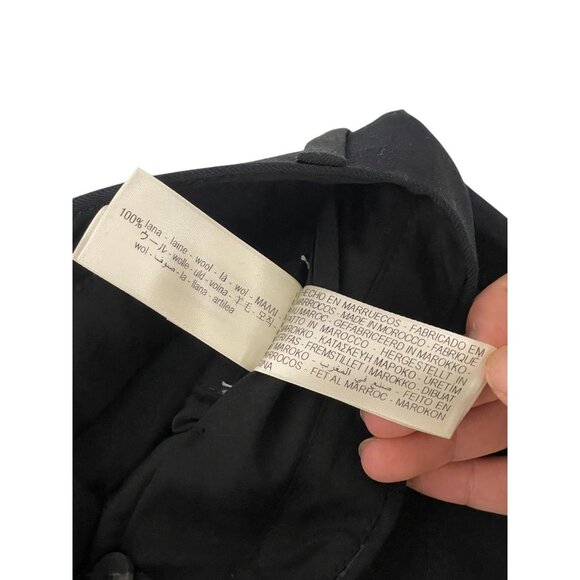 100% lana - laine - wool - lã - wol
ウール - wolle - uld - volna - 羊毛 - 모직 - ΜΑΛΛΙ
wol - صوف - la - llana - artilea
HECHO EN MARRUECOS - FABRICADO EM
MARROCOS - MADE IN MOROCCO - FABRIQUÉ
AU MAROC - GEFABRICEERD IN MAROKKO
FATTO IN MAROCCO - HERGESTELLT IN
MAROKKO - ΚΑΤΑΣΚΕΥΗ ΜΑΡΟΚΟ - ÜRETIM
- FREMSTILLET I MAROKKO - DIBUAT
MAROKO - صنع في المغرب - FEITO EN
MARROCOS - FET AL MARROC - MAROKON